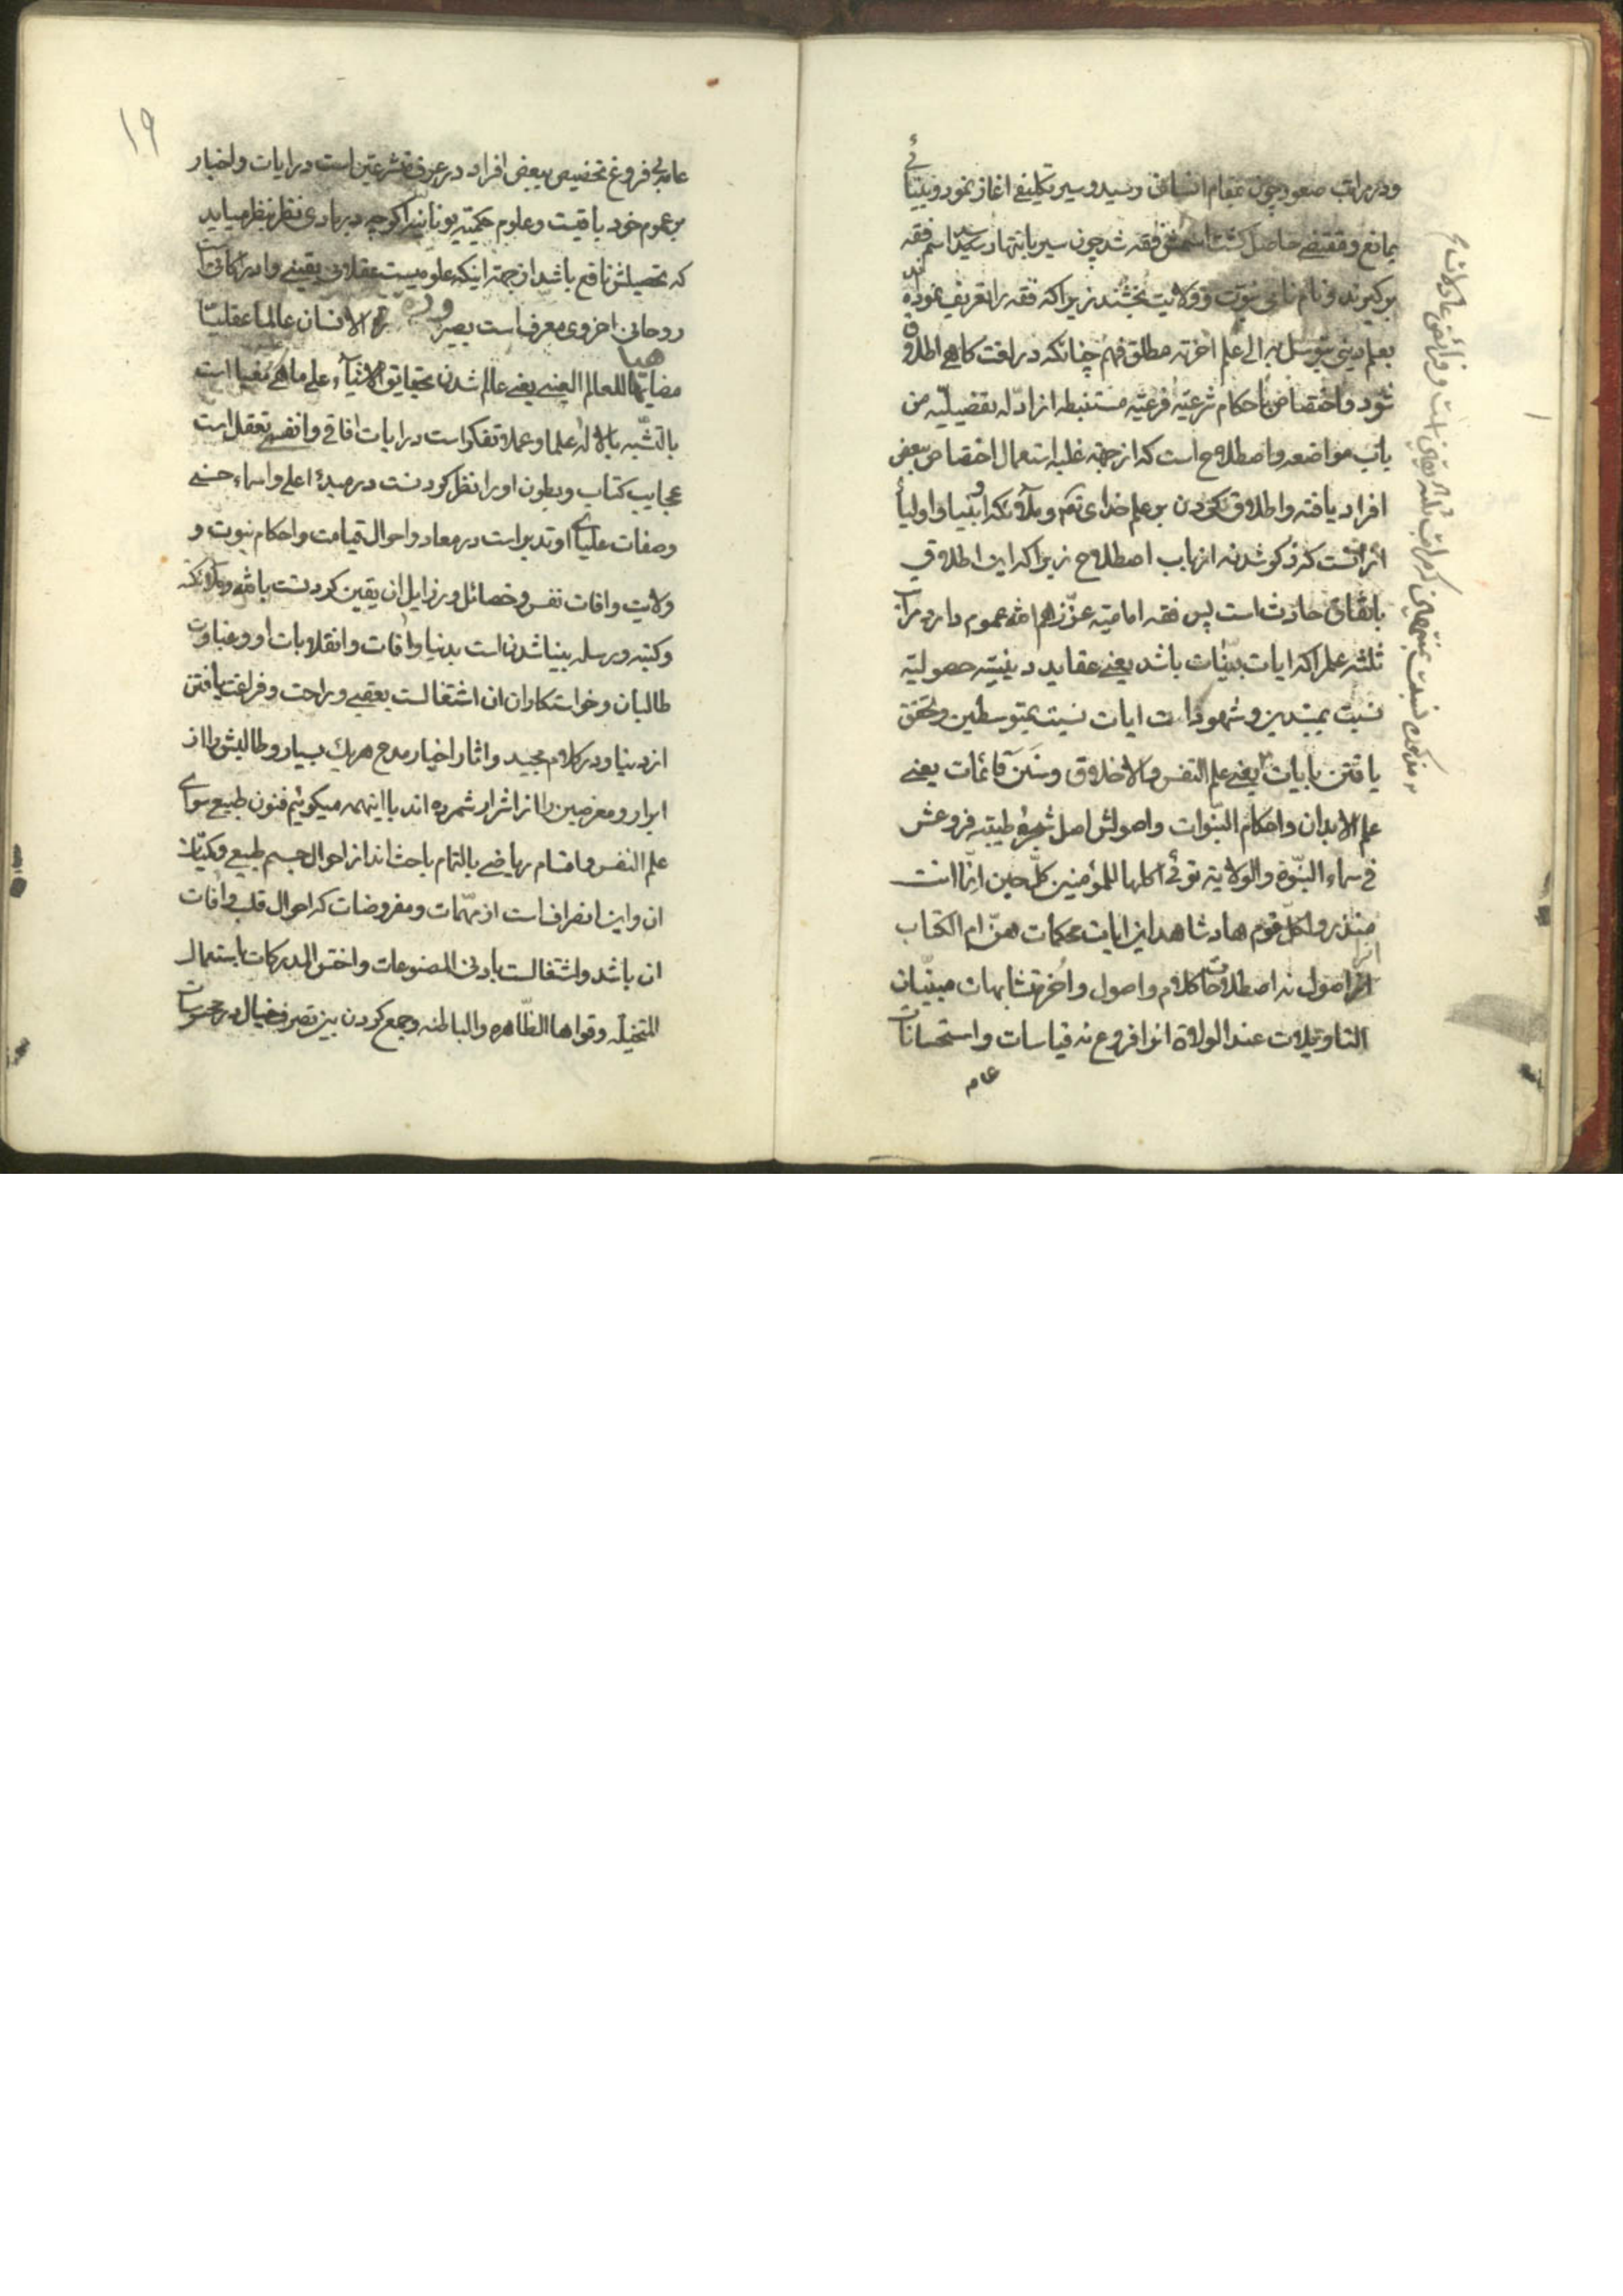 ودر مراتب صعود چون بمقام انسانی رسید و سیر تکلیفی اغاز نمود و بینائی
بمانع و مقتضی حاصل گشت اسمش فقه شد چون سیر بانتها رسید اسم فقه
برگیرند و نام نامی نبوت و ولایت بخشند زیرا که فقه را تعریف نموده اند
بعلم دینی یتوسل به الی علم اخر نه مطلق فهم چنانکه در لغت کاهی اطلاق
شود و اختصاص باحکام شرعیه فرعیه مستنبطه از ادله تفصیلیه من
باب مواضعه و اصطلاح است که از جهة غلبه استعمال اختصاص ببعض
افراد یافته و اطلاق نکردن بر علم خدای تعم و ملائکه و انبیا و اولیا
از انست که ذکر شد نه از باب اصطلاح زیرا که این اطلاق
باتفاق حادث است پس فقه امامیه عزهم الله عموم دارد مراتب
ثلثه علم را که ایات بینات باشد یعنی عقاید دینیه حصولیه
نسبت بمبتدین و شهود ایات نسبت بمتوسطین و تحقق
یافتن بایات یعنی علم النفس والاخلاق وسنن قائمات یعنی
علم الابدان و احکام النبوات و اصولش اصل شجره طیبه فروعش
فی سماء النبوة والولایة تؤتی اکلها للمؤمنین کل حین انما انت
منذر ولکل قوم هاد شاهد این ایات محکمات هن ام الکتاب
انرا اصول نه اصطلاحات کلام و اصول و اخر متشابهات مبینان
التاویلات عند الولاة انرا فروع نه قیاسات و استحسانات
عام
۱۹
عامه بی فروغ تخصیص ببعض افراد در عرف متشرعین است در ایات و اخبار
بر عموم خود باقیست و علوم حکمیه یونانیه اگرچه در بادی نظر بنظر میاید
که تحصیلش نافع باشد از جهة اینکه علومیست عقلانی یقینی و ادراکاتیست
روحانی اخروی معرف است بصیرورة الانسان عالما عقلیا
مضاهیا للعالم العینی یعنی عالم شدن بحقایق الاشیآء علی ما هی مغیا است
بالتشبه بالاله علما و عملا و تفکر است در ایات افاقی و انفسی تعقل است
عجایب کتاب و بطون او را نظر کردنست در مبدء اعلی و اسماء حسنی
وصفات علیای او تدبر است در معاد و احوال قیامت و احکام نبوت و
ولایت و افات نفس و خصائل و رذایل ان یقین کردنست بالله و ملائکته
وکتبه ورسله بینا شدن است بدنیا و افات و انقلابات او و غباوت
طالبان و خواستکاران ان اشتغالست بعقبی و راحت و فراغت یافتن
از دنیا و در کلام مجید و اثار اخیار مدح هریک بسیار و طالبش را از
ابرار و معرضین را از اشرار شمرده اند با اینهمه میکوئیم فنون طبیع سوای
علم النفس و اقسام ریاضی بالتمام باحث اند از احوال جسم طبیعی و کمیات
ان و این انصراف است از مهمات و مفروضات که احوال قلب و افات
ان باشد و اشتغالست بادنی المصنوعات و اخس المدرکات باستعمال
المتخیله وقواها الظاهره والباطنه و جمع کردن بین تصرف خیال در محسوسات